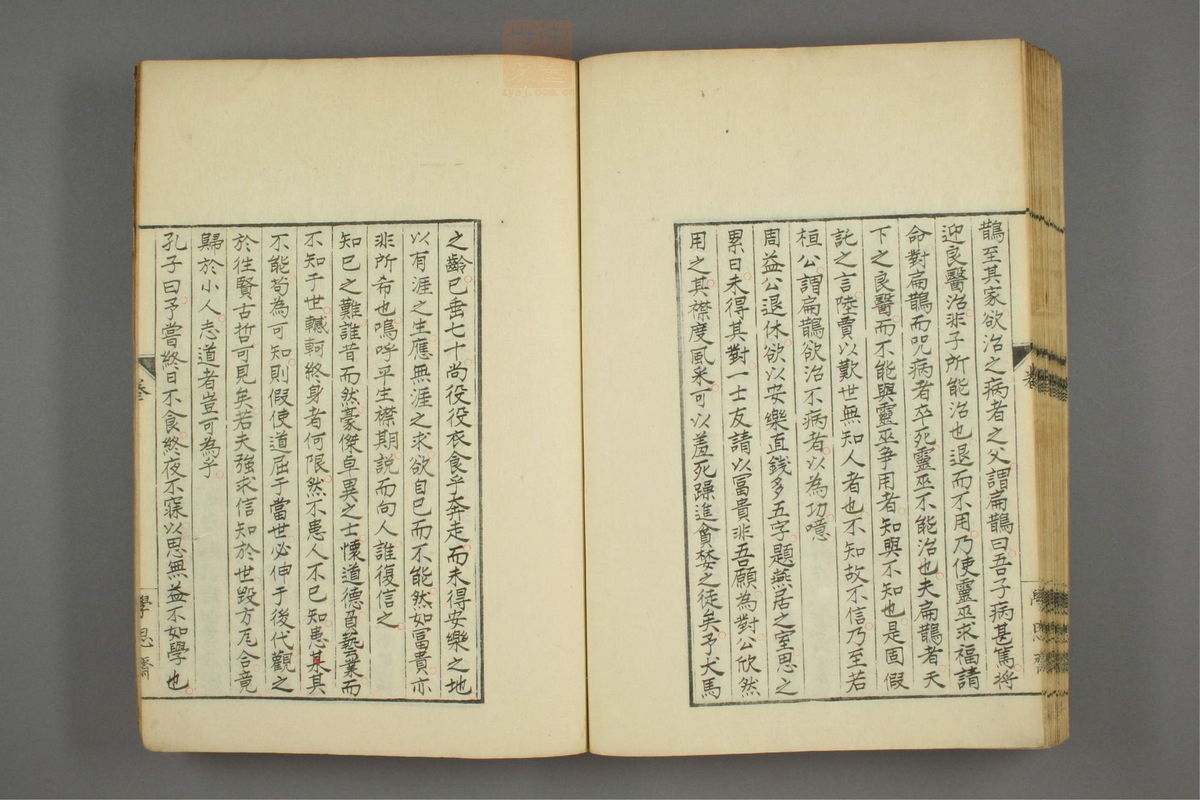 鵲至其家欲治之病者之父謂扁鵲曰吾子病甚篤將
迎良醫治非子所能治也退而不用乃使靈巫求福請
命對扁鵲而咒病者卒死靈巫不能治也夫扁鵲者天
下之良醫而不能與靈巫爭用者知與不知也是固假
託之言陸賈以歎世無知人者也不知故不信乃至若
桓公謂扁鵲欲治不病者以為功噫
周益公退休欲以安樂直錢多五字題燕居之室思之
累日未得其對一士友請以富貴非吾願為對公欣然
用之其襟度風采可以羞死躁進貪婪之徒矣予犬馬
之齡已垂七十尚役役衣食乎奔走而未得安樂之地
以有涯之生應無涯之求欲自已而不能然如富貴亦
非所希也嗚呼平生襟期說而向人誰復信之
知己之難誰昔而然豪傑卓異之士懷道德負藝業而
不知于世轗軻終身者何限然不患人不已知患某其
不能茍為可知則假使道屈于當世必伸于後代觀之
於徃賢古哲可見矣若夫強求信知於世毀方瓦合竟
歸於小人志道者豈可為乎
孔子曰予嘗終日不食終夜不寐以思無益不如學也
卷
學思齋
zysj.com.cn